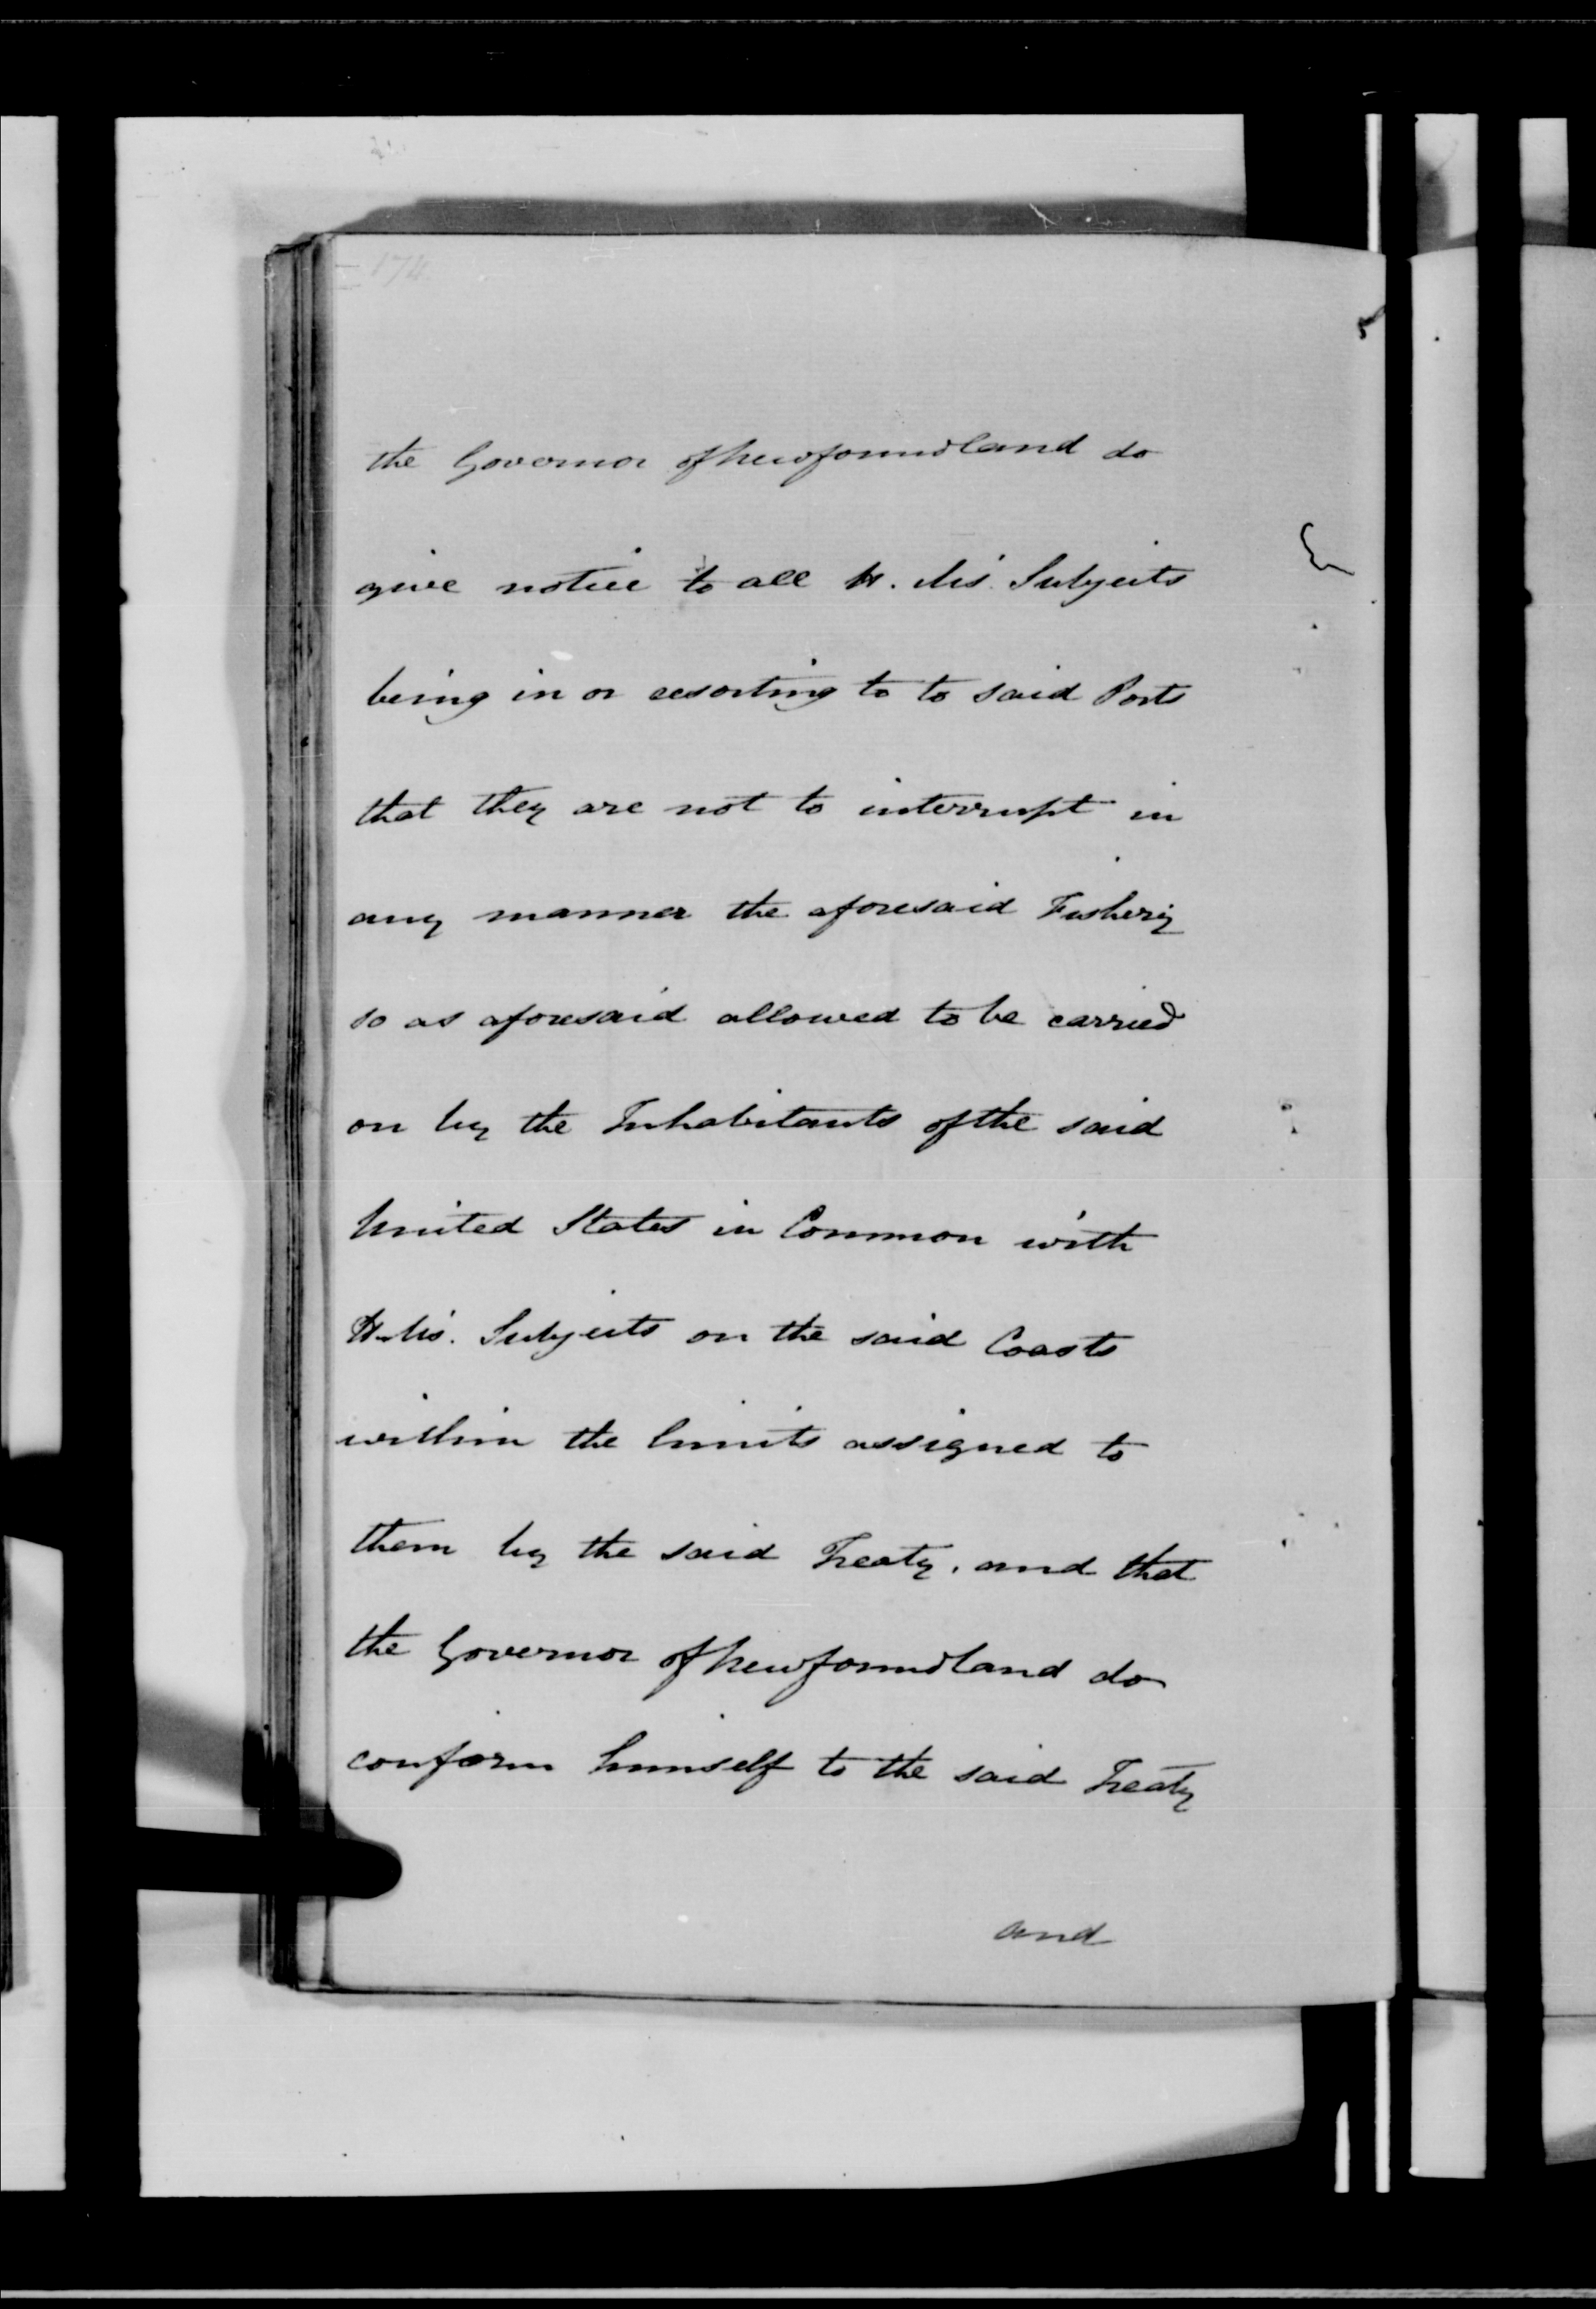 174
the Governor of Newfoundland do
give notice to all H. M's. Subjects
being in or resorting to to said Ports
that they are not to interrupt in
any manner the aforesaid Fishery
so as aforesaid allowed to be carried
on by the Inhabitants of the said
United States in Common with
H. M's. Subjects on the said Coasts
within the limits assigned to
them by the said Treaty, and that
the Governor of Newfoundland do
conform himself to the said Treaty
and